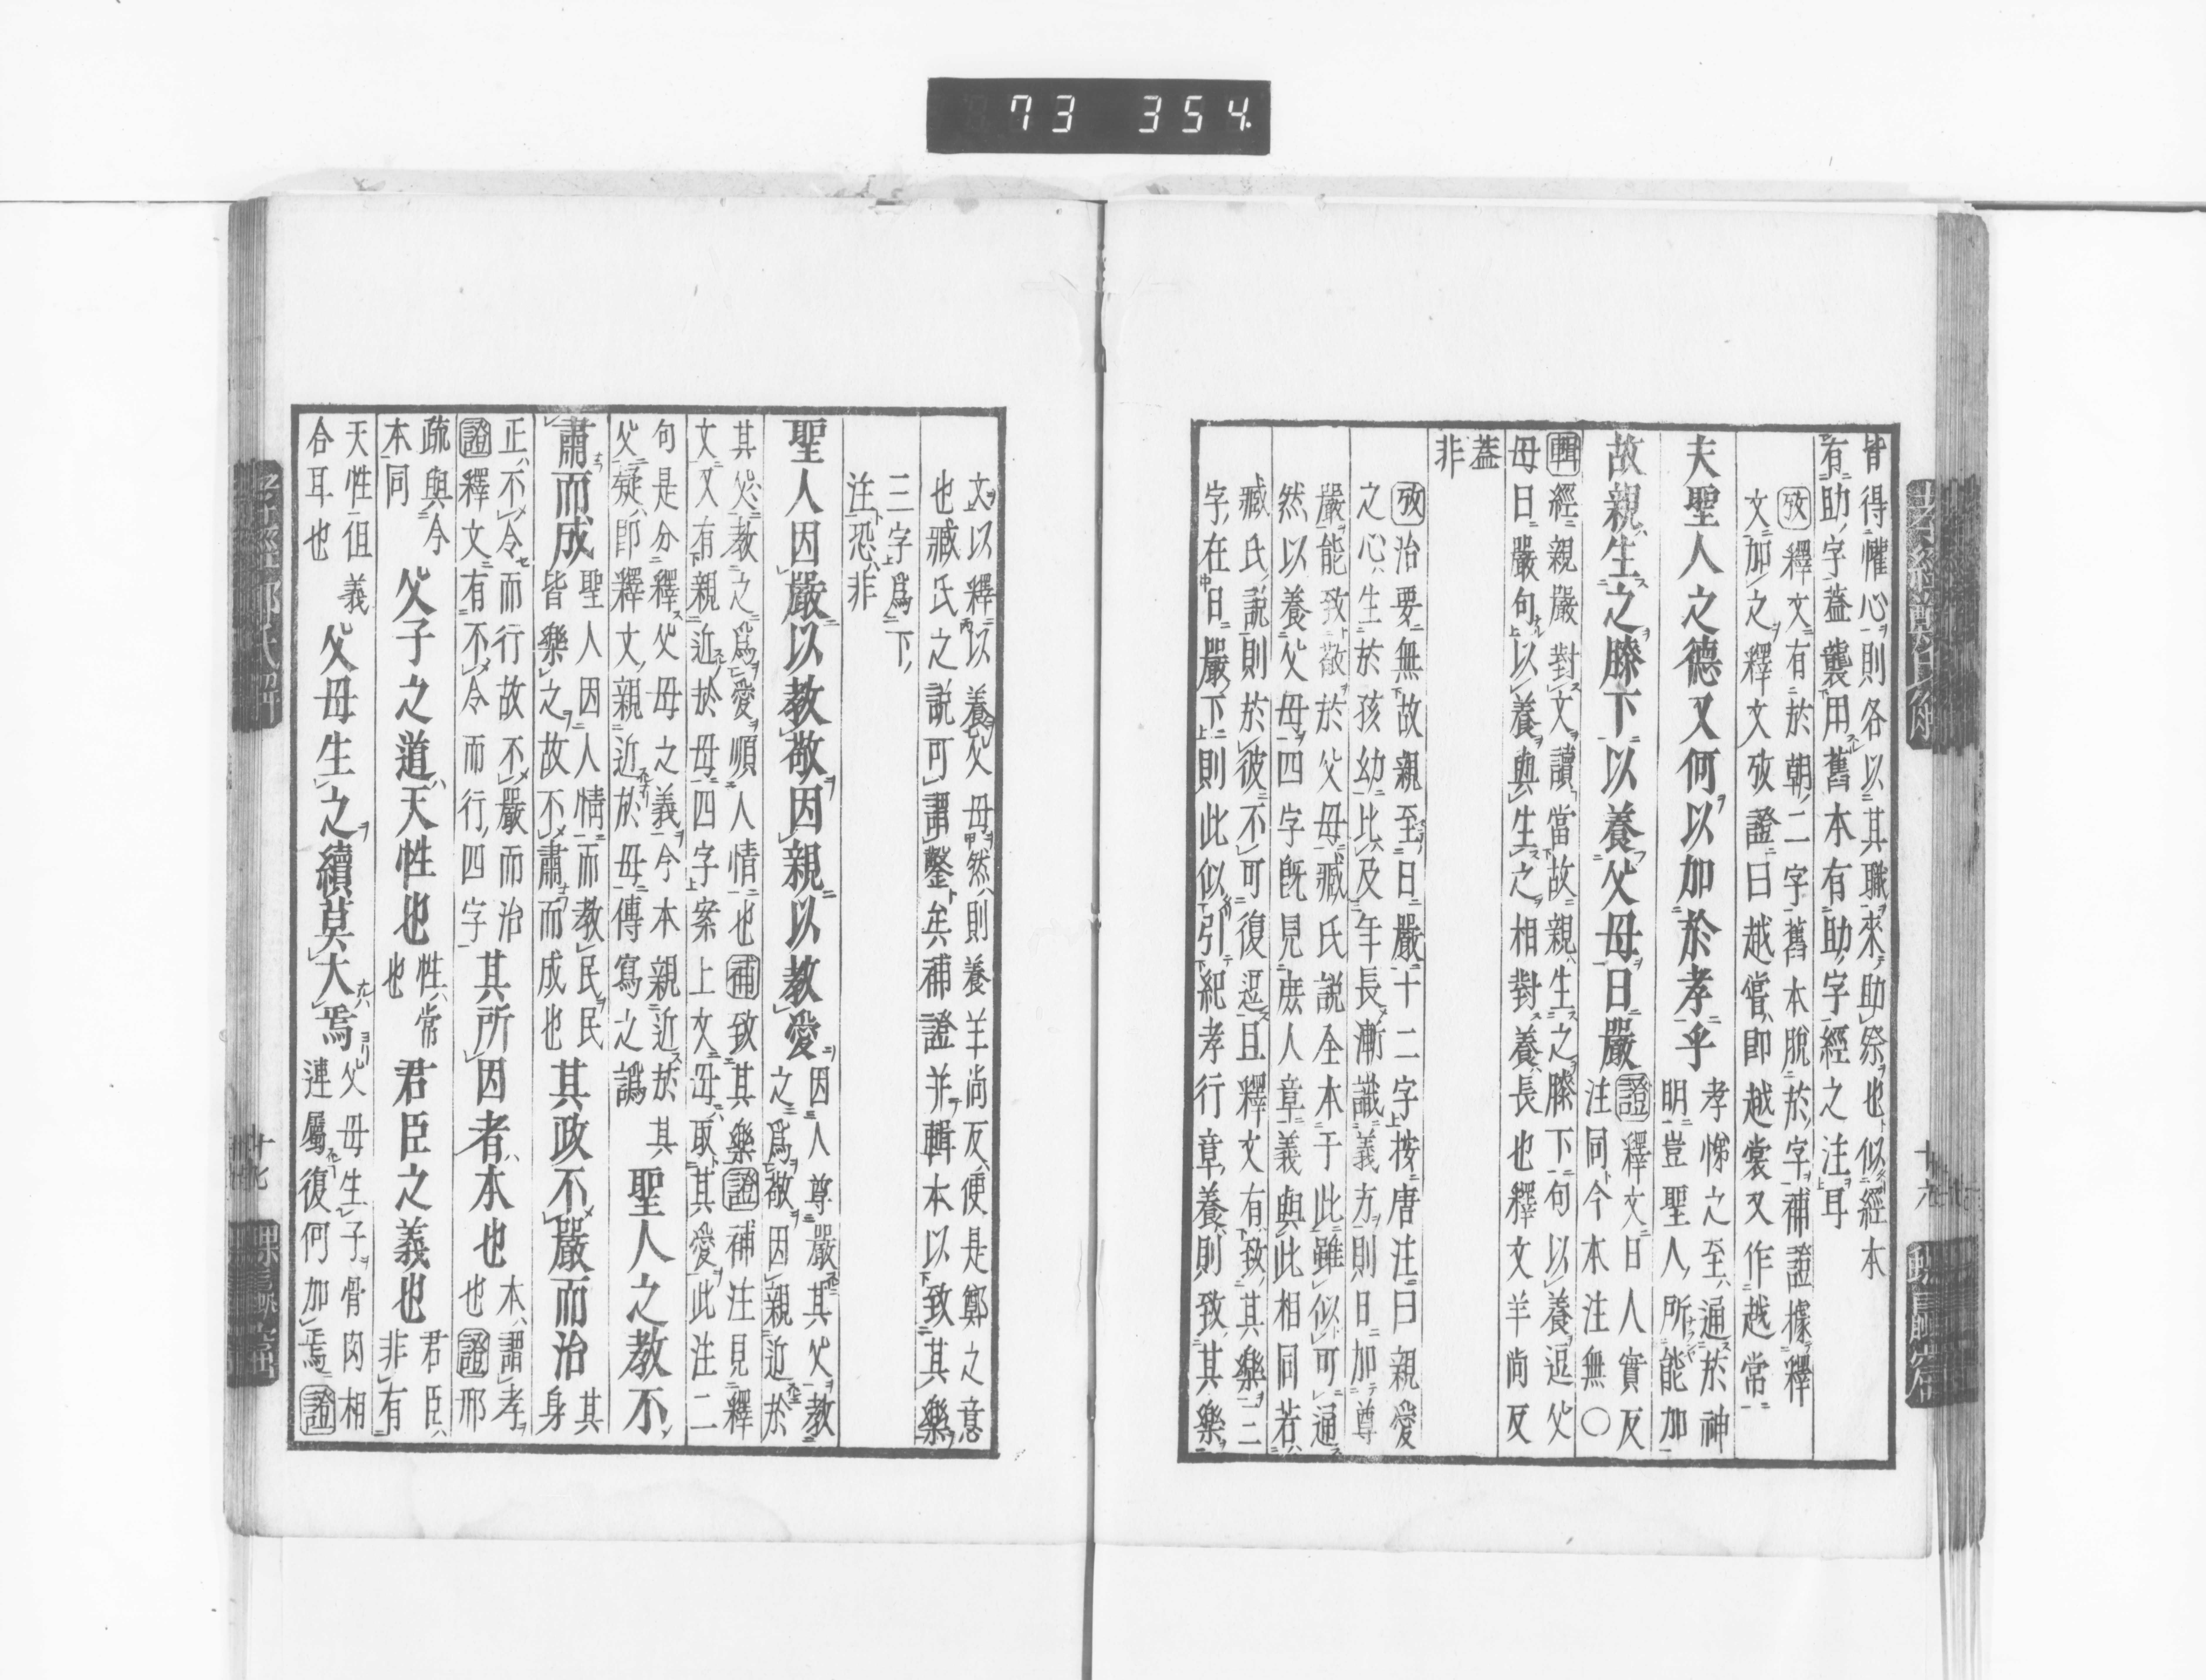 73 354
皆得懽心則各以其職來助祭也似經本
有助字蓋襲用舊本有助字經之注耳
攷釋文有於朝二字舊本脫於字補證據釋
文加之釋文攷證曰越嘗即越裳又作越常
夫聖人之德又何以加於孝乎
孝悌之至通於神
明豈聖人所能加
故親生之膝下以養父母日嚴
證釋文日人實反
注同今本注無〇
輯經親嚴對文讀當故親生之膝下句以養逗父
母日嚴句以養與生之相對養長也釋文羊尚反
蓋
非
攷治要無故親至日嚴十二字按唐注曰親愛
之心生於孩幼比及年長漸識義方則日加尊
嚴能致敬於父母臧氏說全本于此雖似可通
然以養父母四字旣見庶人章義與此相同若
臧氏說則於彼不可復逗且釋文有致其樂三
字在日嚴下則此似引紀孝行章養則致其樂
十六
文以釋以養父母然則養羊尚反便是鄭之意
也臧氏之說可謂鑿矣補證并輯本以致其樂
三字爲下
注恐非
聖人因嚴以教敬因親以教愛
因人尊嚴其父教
之爲敬因親近於
其父教之爲愛順人情也補致其樂證補注見釋
文又有親近於母四字案上文母取其愛此注二
句是分釋父母之義今本親近於其
父疑即釋文親近於母傳寫之譌
聖人之教不
肅而成
聖人因人情而教民民
皆樂之故不肅而成也
其政不嚴而治
其
身
正不令而行故不嚴而治
證釋文有不令而行四字
其所因者本也
本謂孝
也證邢
疏與今
本同
父子之道天性也
性常
也
君臣之義也
君臣
非有
天性但義
合耳也
父母生之續莫大焉
父母生子骨肉相
連屬復何加焉證
孝經鄭氏解
十七